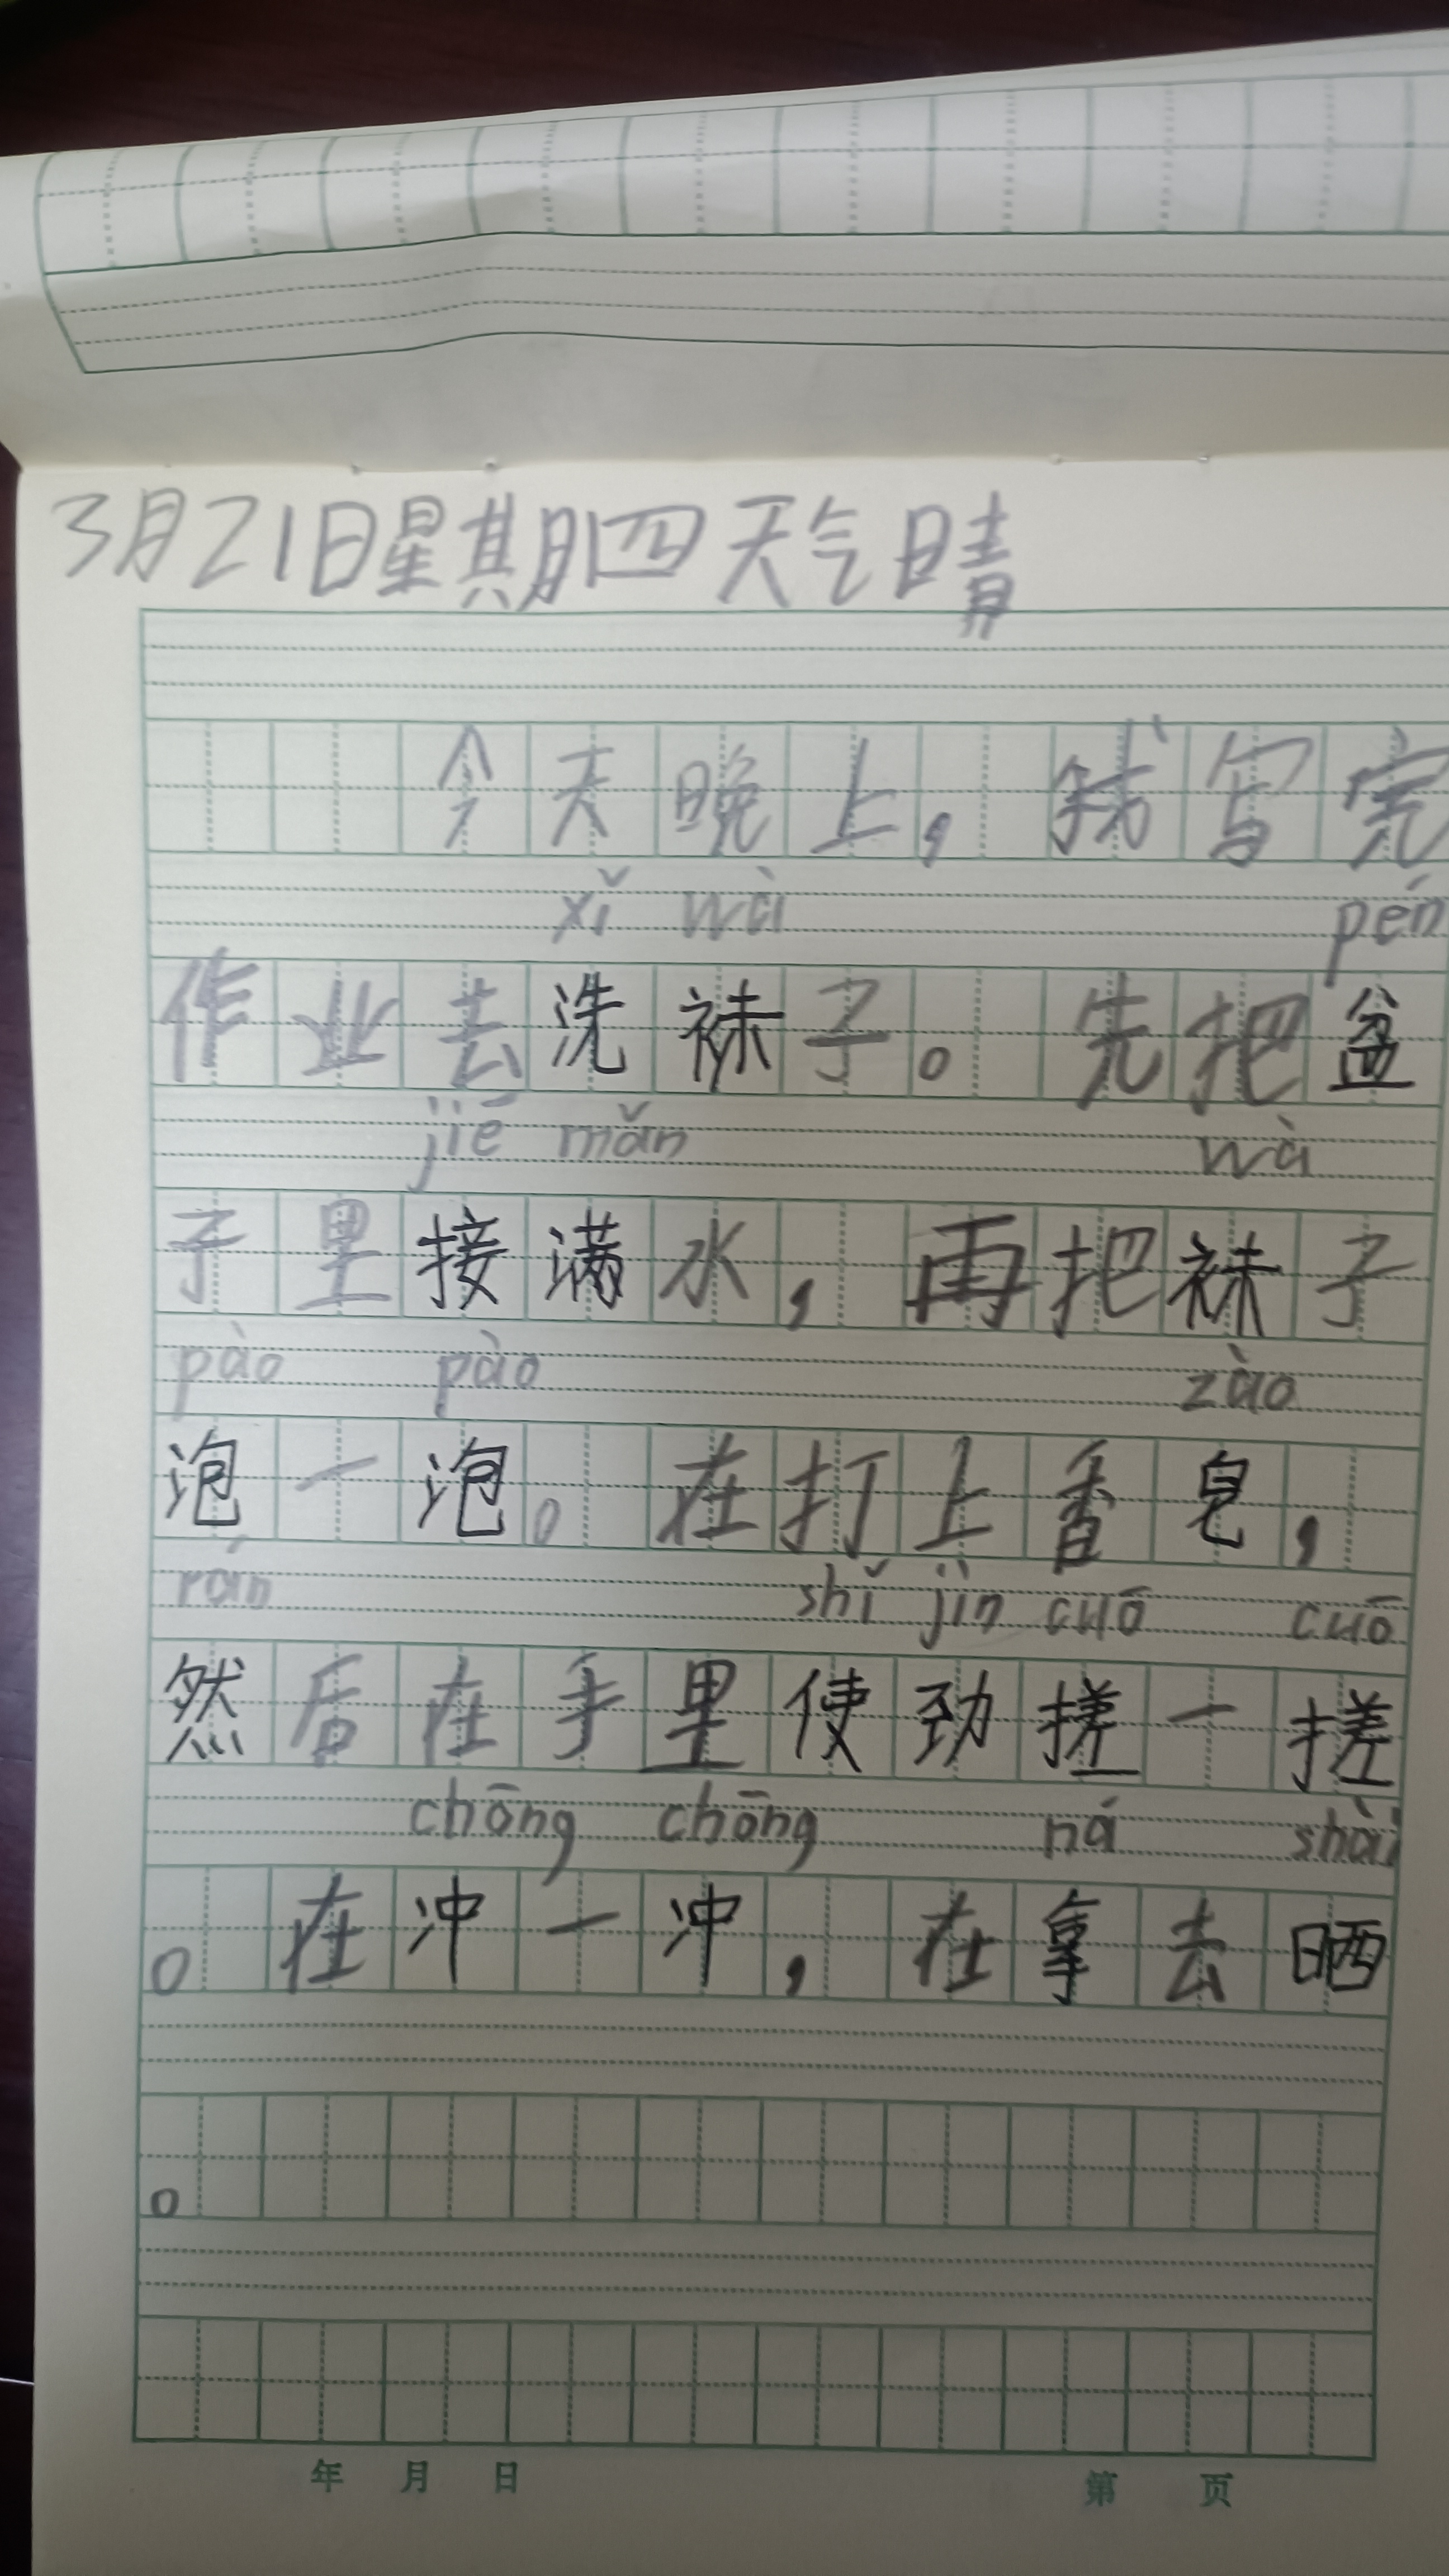 3月21日星期四天气晴
今天晚上，我写完
xǐ wà pén
作业去洗袜子。先把盆
jiē mǎn wà
子里接满水，再把袜子
pào pào zào
泡一泡。在打上香皂，
rán shǐ jìn cuō cuō
然后在手里使劲搓一搓
chōng chōng ná shài
。在冲一冲，在拿去晒
。
年 月 日 第 页